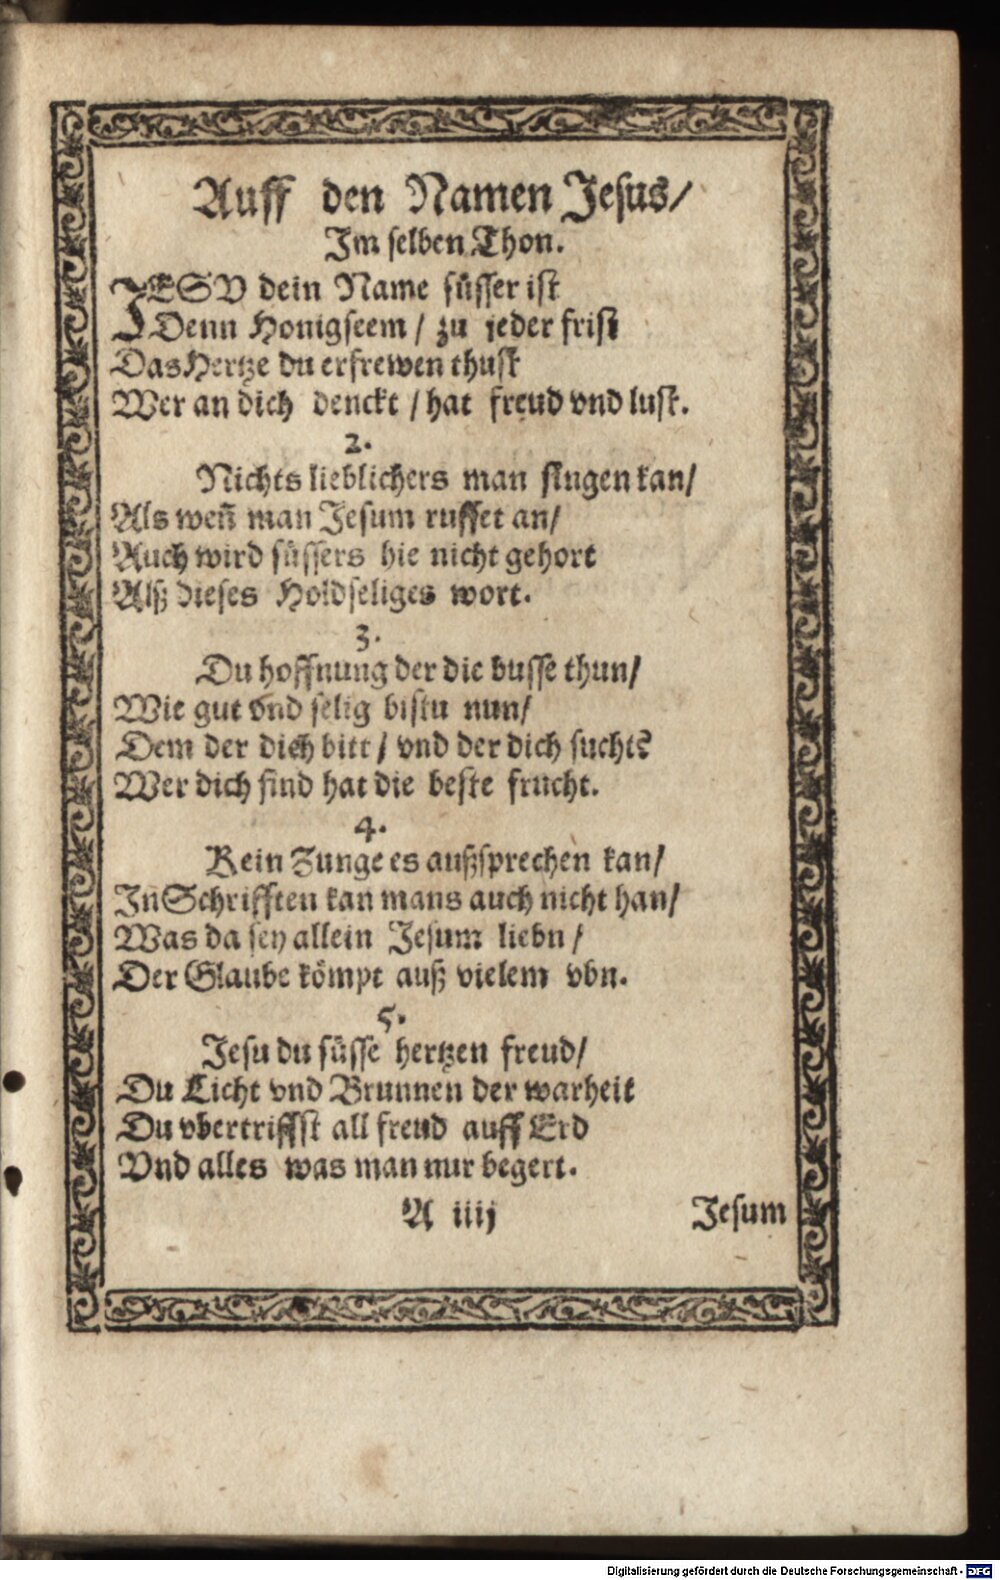 Auff den Namen Jesus/
Im selben Thon.
JESV dein Name süsser ist
Denn Honigseem / zu jeder frist
Das Hertze du erfrewen thust
Wer an dich denckt / hat freud vnd lust.
2.
Nichts lieblichers man singen kan/
Als weñ man Jesum ruffet an/
Auch wird süssers hie nicht gehort
Alß dieses Holdseliges wort.
3.
Du hoffnung der die busse thun/
Wie gut vnd selig bistu nun/
Dem der dich bitt / vnd der dich sucht?
Wer dich find hat die beste frucht.
4.
Kein Zunge es außsprechen kan/
In Schrifften kan mans auch nicht han/
Was da sey allein Jesum liebn /
Der Glaube kömpt auß vielem vbn.
5.
Jesu du süsse hertzen freud/
Du Licht vnd Brunnen der warheit
Du vbertriffst all freud auff Erd
Vnd alles was man nur begert.
A iiij Jesum
Digitalisierung gefördert durch die Deutsche Forschungsgemeinschaft - DFG